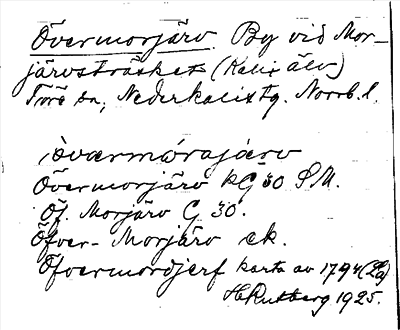 Övermorjärv. By vid Mor-
järvsträsket (Kalix älv)
Töre sn, Nederkalix tg. Norrb. l.
övarmórajärv
Övermorjärv KG 30 SM.
Öf. Morjärv G 30.
Öfver-Morjärv ek.
Öfvermordjerf karta av 1794 (La)
H Rutberg 1925.